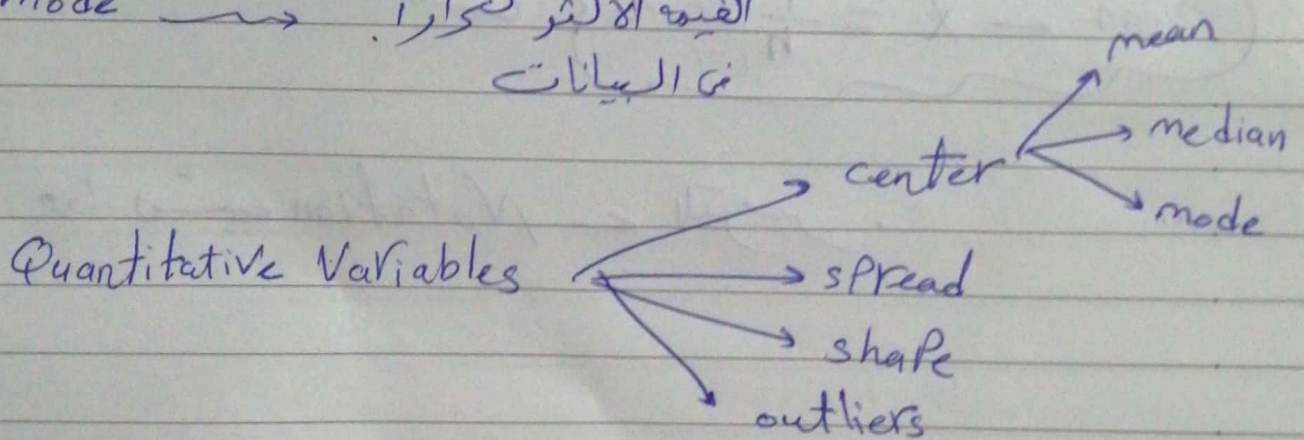 mode → القيمة الاكثر تكرارا.
فى البيانات
mean
center → median
mode
Quantitative Variables → spread
shape
outliers